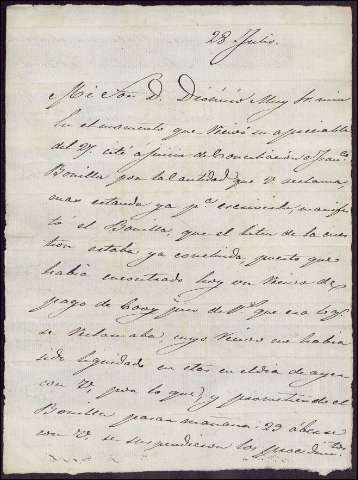 28 Julio.
Mi Sor. D. Dionicio Muy Sr. mio
En el momento que recivi su apreciable
del 27, cité á juicio de Conciliación á Franco.
Bonilla por la Cantidad que V. reclama,
mas estando ya pa. escrivirla, manifes-
tó el Bonilla, que el literr de la cues-
tion estaba ya concluida, puesto que
habia encontrado hoy un recivo de
pago de
se reclamaba, cuyo recivo no habia
sido liquidado en el dia de ayer
con V., por lo que, y prometiendo el
Bonilla pasar mañana 29 á berse
con V. se suspendieron los procedimtos.